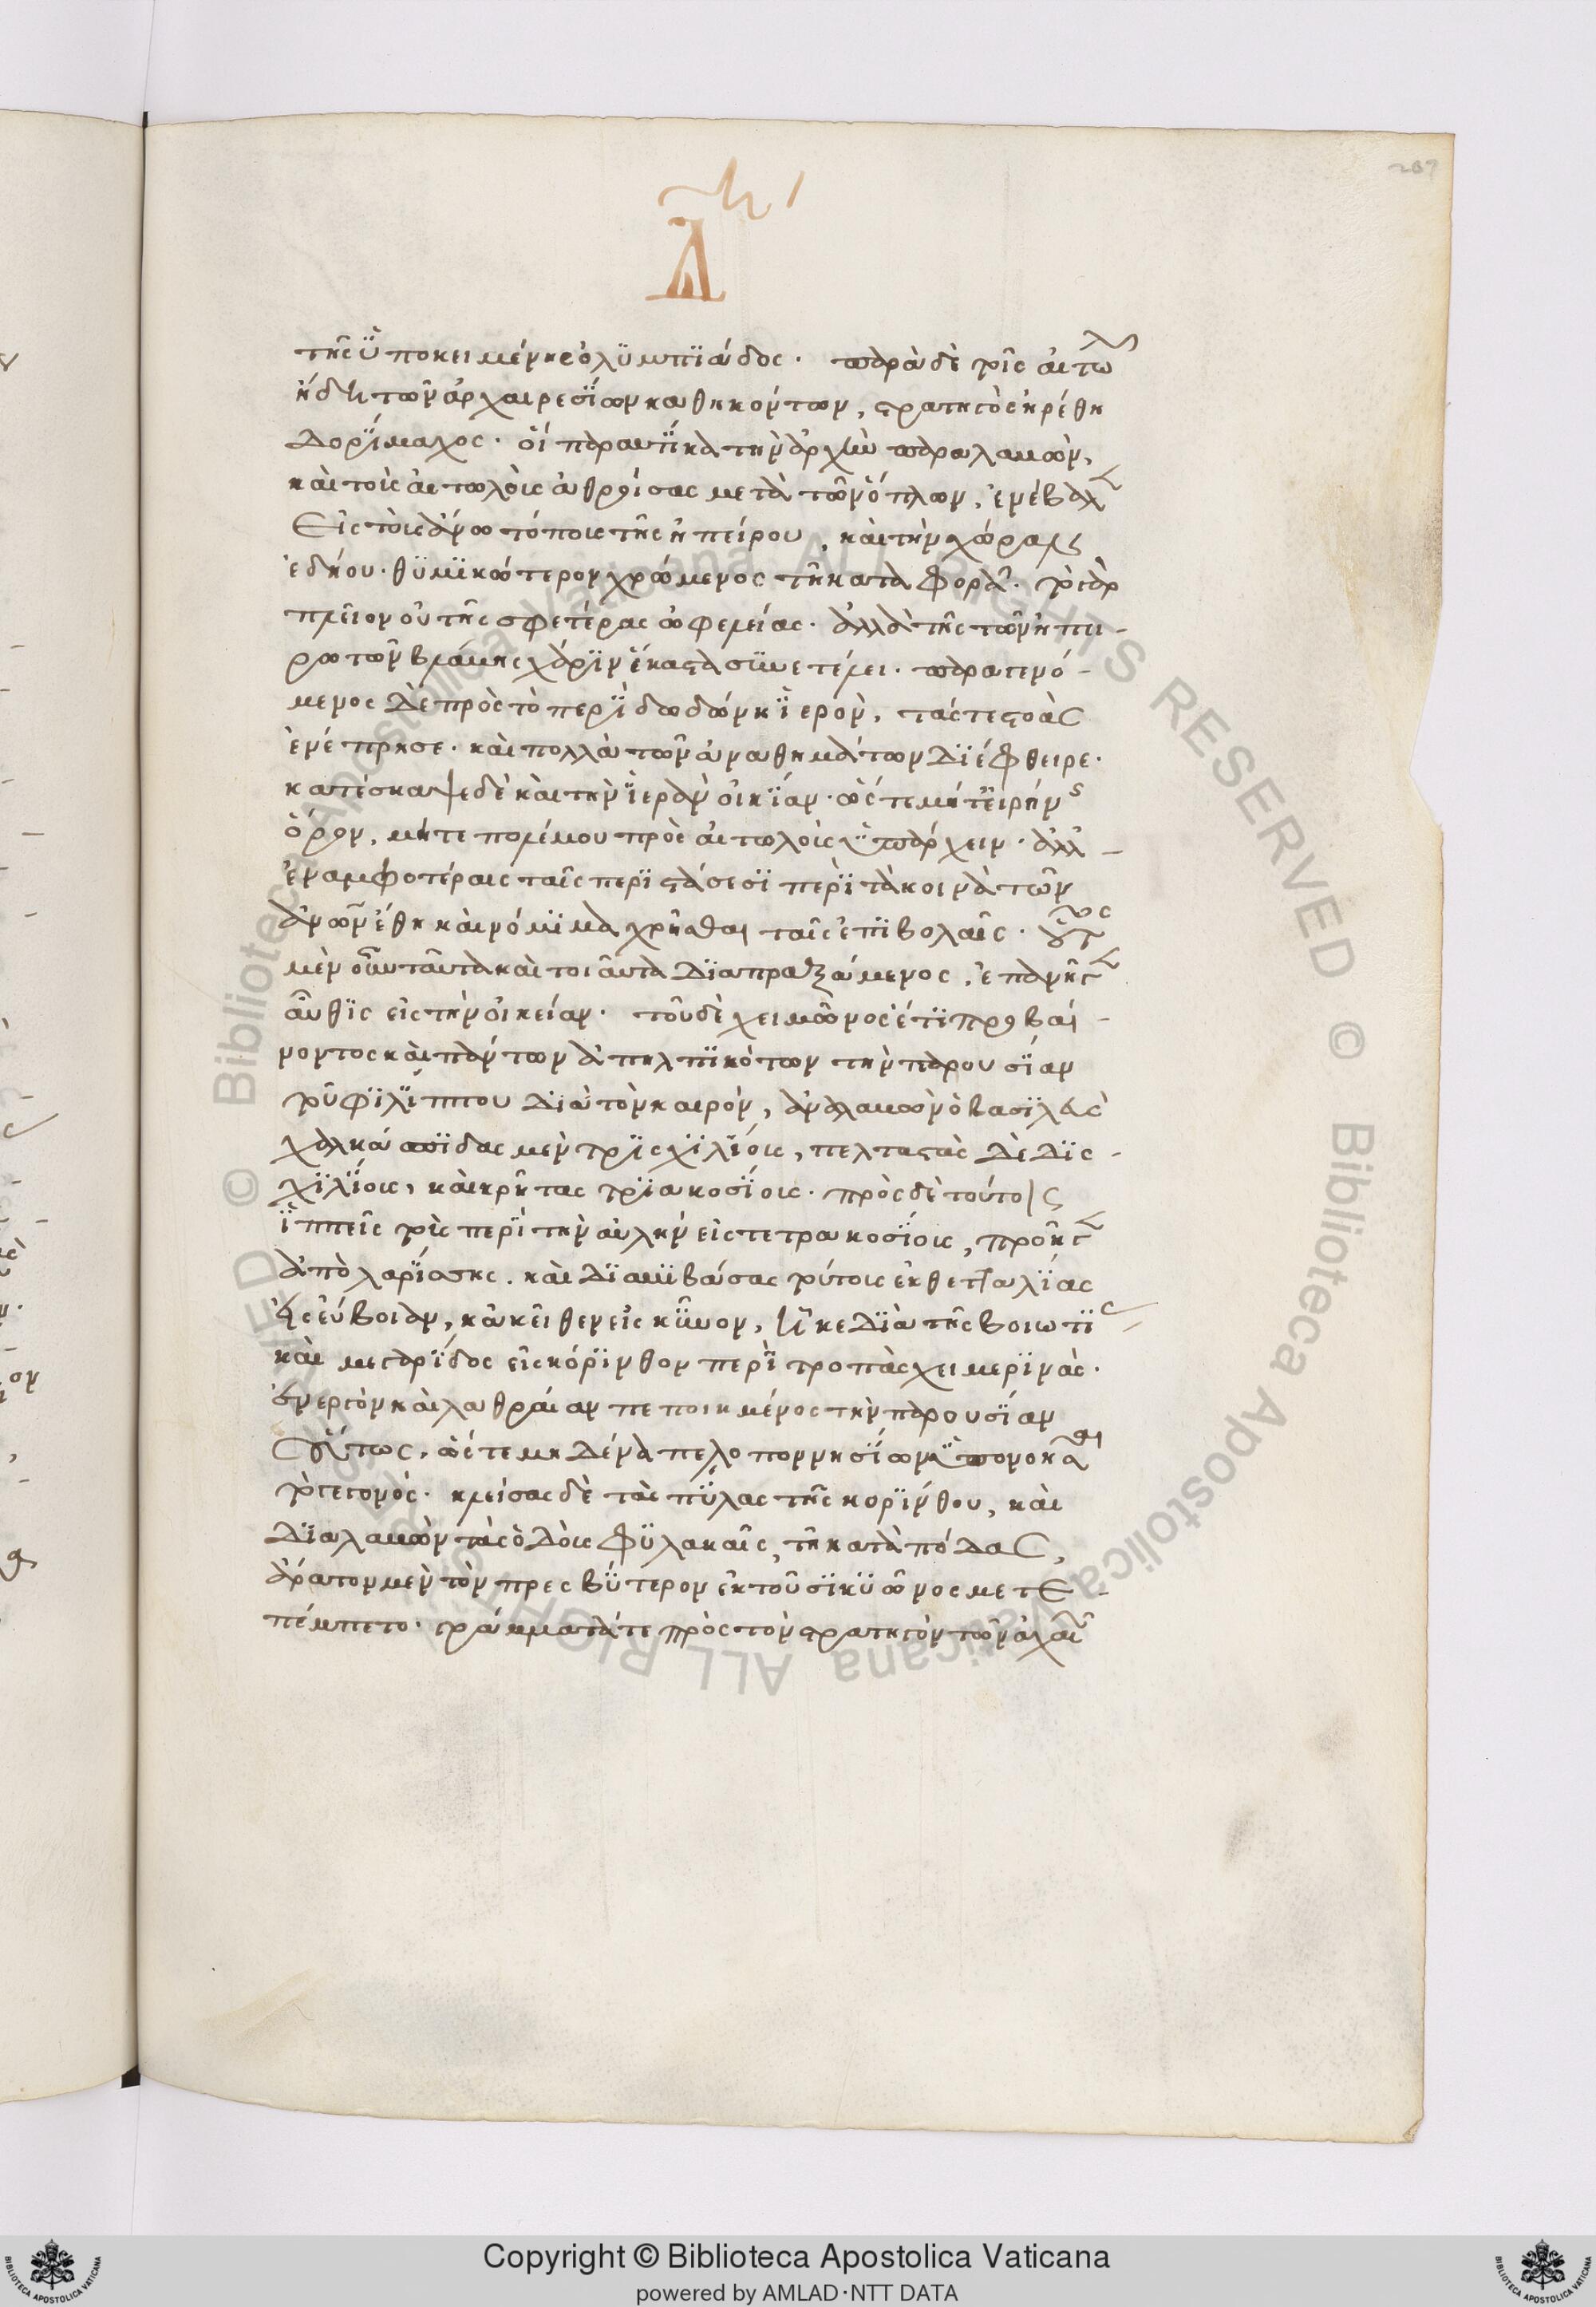 267
δη
Λ
τῆς ὑποκειμένης ὀλυμπιάδος· παρὰ δὲ τοῖς αἰτωλ
ἤδη τῶν ἀρχαιρεσίων καθηκόντων, στρατηγὸς ἡρέθη
δορίμαχος· ὃς παραυτίκα τὴν ἀρχὴν παραλαβὼν,
καὶ τοὺς αἰτωλοὺς ἀθροίσας μετὰ τῶν ὅπλων, ἐνέβαλεν
εἰς τοὺς ἄνω τόπους τῆς ἠπείρου, καὶ τὴν χώραν
ἐδῄου· θυμικώτερον χρώμενος τῇ καταφορᾷ· τὸ γὰρ
πλεῖον οὐ τῆς σφετέρας ὠφελείας· ἀλλὰ τῆς τῶν ἠπει-
ρωτῶν βλάβης χάριν ἕκαστα συνετέλει· παραγενό-
μενος δὲ πρὸς τὸ περὶ δωδώνην ἱερὸν, τάς τε στοὰς
ἐνέπρησε· καὶ πολλὰ τῶν ἀναθημάτων διέφθειρε·
κατέσκαψε δὲ καὶ τὴν ἱερὰν οἰκίαν· ὥστε μήτ' εἰρήνης
ὅρον, μήτε πολέμου πρὸς αἰτωλοὺς ὑπάρχειν· ἀλλ'
ἐν ἀμφοτέραις ταῖς περιστάσεσι περὶ τὰ κοινὰ τῶν
ἀνων ἔθη καὶ νόμιμα χρῆσθαι ταῖς ἐπιβολαῖς· οὗτος
μὲν οὖν ταῦτα καὶ τοιαῦτα διαπραξάμενος, ἐπανῆγεν
αὖθις εἰς τὴν οἰκείαν· τοῦ δὲ χειμῶνος ἔτι προβαί-
νοντος καὶ πάντων ἀπηλπικότων τὴν παρουσίαν
τοῦ φιλίππου διὰ τὸν καιρὸν, ἀναλαβὼν ὁ βασιλεὺς
χαλκάσπιδας μὲν τρισχιλίους, πελταστὰς δὲ δισ-
χιλίους, καὶ κρῆτας τριακοσίους· πρὸς δὲ τούτοις
ἱππεῖς τοὺς περὶ τὴν αὐλὴν εἰς τετρακοσίους, προῆγεν
ἀπὸ λαρίσσης. καὶ διαβιβάσας τούτους ἐκ θετταλίας
εἰς εὔβοιαν, κἀκεῖθεν εἰς κῦνον, ἧκε διὰ τῆς βοιωτίας
καὶ μεγαρίδος εἰς κόρινθον περὶ τροπὰς χειμερινάς·
ἐνεργὸν καὶ λαθραίαν πεποιημένος τὴν παρουσίαν
οὕτως, ὥστε μηδένα πελοποννησίων ὑπονοῆσαι
τὸ γεγονός· κλείσας δὲ τὰς πύλας τῆς κορίνθου, καὶ
διαλαβὼν τὰς ὁδοὺς φυλακαῖς, τῇ κατὰ πόδας,
ἄρατον μὲν τὸν πρεσβύτερον ἐκ τοῦ σικυῶνος μετε-
πέμπετο· γράμματά τε πρὸς τὸν στρατηγὸν τῶν ἀχαιῶν
Copyright © Biblioteca Apostolica Vaticana
powered by AMLAD·NTT DATA